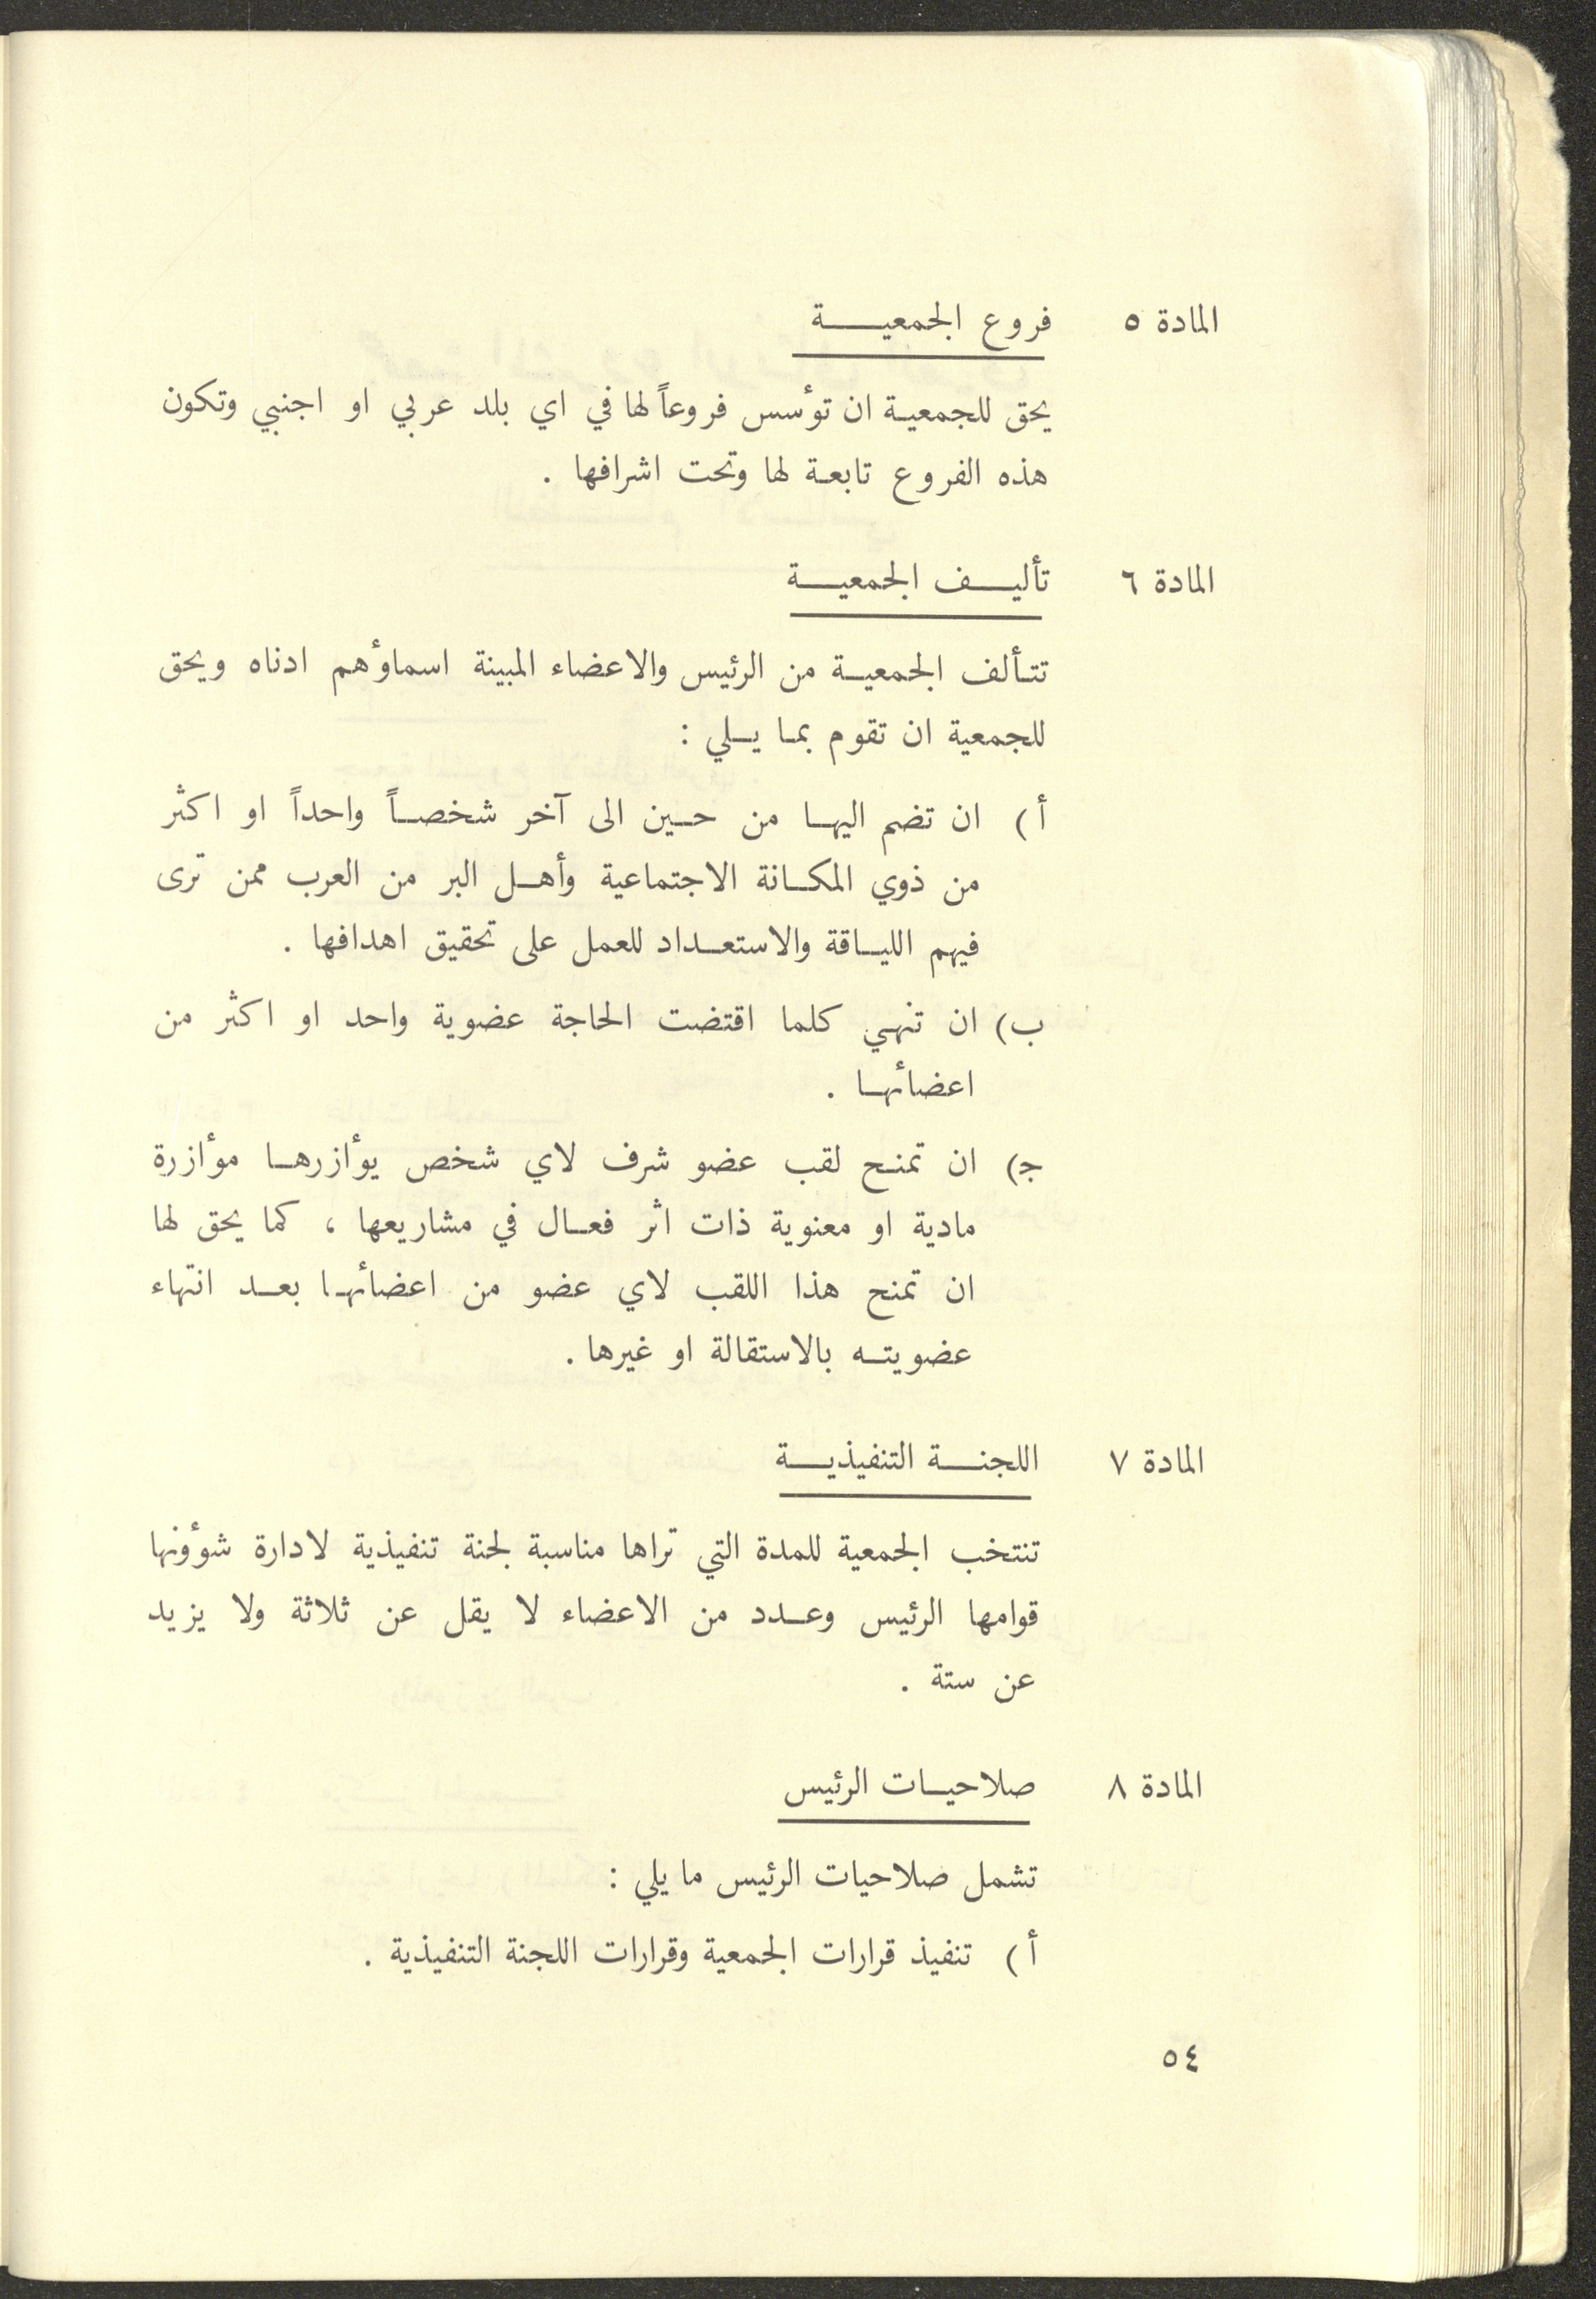 المادة ٥ فروع الجمعية
يحق للجمعية ان تؤسس فروعاً لها في اي بلد عربي او اجنبي وتكون
هذه الفروع تابعة لها وتحت اشرافها .
المادة ٦ تأليف الجمعية
تتألف الجمعية من الرئيس والاعضاء المبينة اسماؤهم ادناه ويحق
للجمعية ان تقوم بما يلي :
أ ) ان تضم اليها من حين الى آخر شخصاً واحداً او اكثر
من ذوي المكانة الاجتماعية وأهل البر من العرب ممن ترى
فيهم اللياقة والاستعداد للعمل على تحقيق اهدافها .
ب) ان تنهي كلما اقتضت الحاجة عضوية واحد او اكثر من
اعضائها .
ج) ان تمنح لقب عضو شرف لاي شخص يؤازرها مؤازرة
مادية او معنوية ذات اثر فعال في مشاريعها ، كما يحق لها
ان تمنح هذا اللقب لاي عضو من اعضائها بعد انتهاء
عضويته بالاستقالة او غيرها .
المادة ٧ اللجنة التنفيذية
تنتخب الجمعية للمدة التي تراها مناسبة لجنة تنفيذية لادارة شؤونها
قوامها الرئيس وعدد من الاعضاء لا يقل عن ثلاثة ولا يزيد
عن ستة .
المادة ٨ صلاحيات الرئيس
تشمل صلاحيات الرئيس ما يلي :
أ ) تنفيذ قرارات الجمعية وقرارات اللجنة التنفيذية .
٥٤